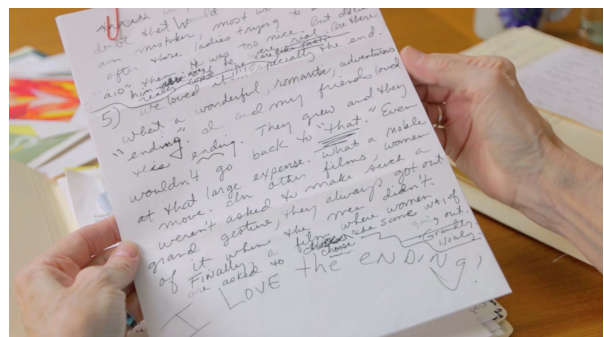 doubt that would
am mistaken, most
after those ladies trying to
him. It was too nice. But
5) we loved it! Especially the end.
What a wonderful, romantic, adventurous
"ending." I and my friends loved
this ending. They grew and they
wouldn't go back to "that." Even
at that large expense. What a noble
move. In other films, women
weren't asked to make such a
grand gesture, they always got out
of it, where the men didn't.
Finally a film where women
are asked to choose the same way of
going out.
Grandly
Nobly.
I LOVE the ENDING!